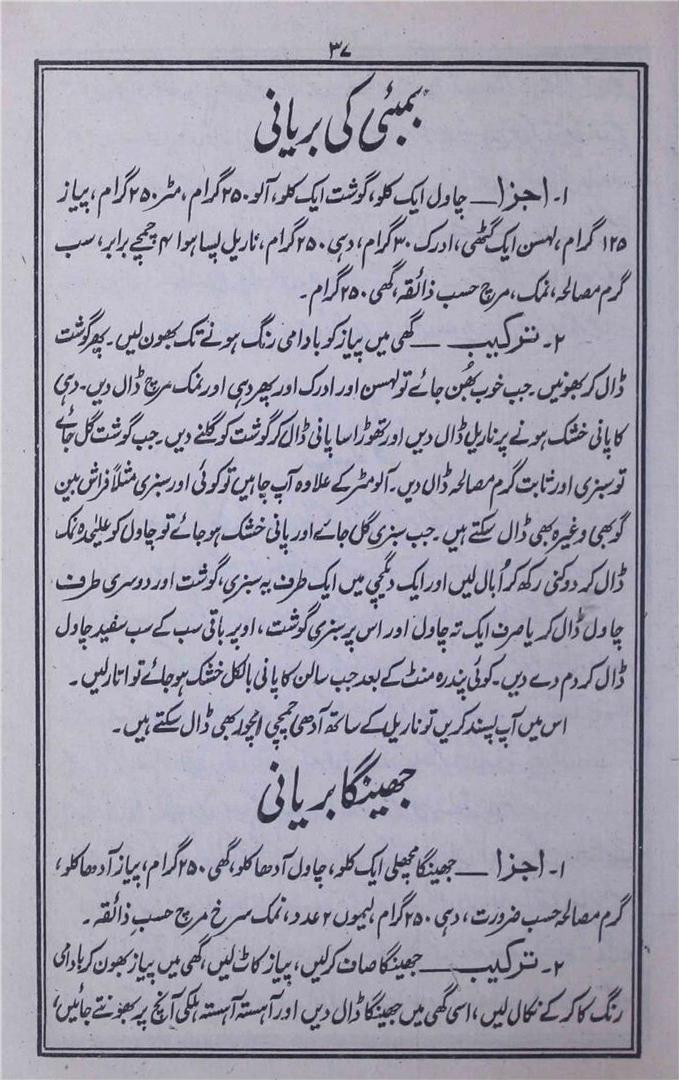 ۳۷
بمبئی کی بریانی
۱۔ اجزا — چاول ایک کلو، گوشت ایک کلو، آلو ۲۵۰ گرام، مٹر ۲۵۰ گرام، پیاز
۱۲۵ گرام، لہسن ایک گٹھی، ادرک ۳۰ گرام، دہی ۲۵۰ گرام، ناریل پسا ہوا ۴ چمچے برابر، سب
گرم مصالحہ، نمک، مرچ حسب ذائقہ، گھی ۲۵۰ گرام۔
۲۔ ترکیب — گھی میں پیاز کو بادامی رنگ ہونے تک بھون لیں۔ پھر گوشت
ڈال کر بھونیں۔ جب خوب بھُن جائے تو لہسن اور ادرک اور پھر دہی اور نمک مرچ ڈال دیں۔ دہی
کا پانی خشک ہونے پر ناریل ڈال دیں اور تھوڑا سا پانی ڈال کر گوشت کو گلنے دیں۔ جب گوشت گل جائے
تو سبزی اور ثابت گرم مصالحہ ڈال دیں۔ آلو مٹر کے علاوہ آپ چاہیں تو کوئی اور سبزی مثلاً فراش بین
گوبھی وغیرہ بھی ڈال سکتے ہیں۔ جب سبزی گل جائے اور پانی خشک ہو جائے تو چاول کو علیٰحدہ نمک
ڈال کہ دو کنی رکھ کر اُبال لیں اور ایک دیگچی میں ایک طرف یہ سبزی، گوشت اور دوسری طرف
چاول ڈال کر یا صرف ایک تہ چاول اور اس پر سبزی گوشت، اوپر باقی سب کے سب سفید چاول
ڈال کر دم دے دیں۔ کوئی پندرہ منٹ کے بعد جب سالن کا پانی بالکل خشک ہو جائے تو اتار لیں۔
اس میں آپ پسند کریں تو ناریل کے ساتھ آدھی چمچی امچور بھی ڈال سکتے ہیں۔
جھینگا بریانی
۱۔ اجزا — جھینگا مچھلی ایک کلو، چاول آدھا کلو، گھی ۲۵۰ گرام، پیاز آدھا کلو،
گرم مصالحہ حسب ضرورت، دہی ۲۵۰ گرام، لیموں ۲ عدد، نمک سرخ مرچ حسبِ ذائقہ۔
۲۔ ترکیب — جھینگا صاف کر لیں، پیاز کاٹ لیں، گھی میں پیاز بھون کر بادامی
رنگ کا کر کے نکال لیں، اسی گھی میں جھینگا ڈال دیں اور آہستہ آہستہ ہلکی آنچ پر بھونتے جائیں،